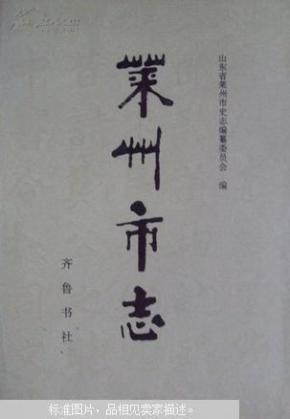 山东省莱州市史志编纂委员会 编
莱州市志
齐鲁书社
标准图片，品相见卖家描述。